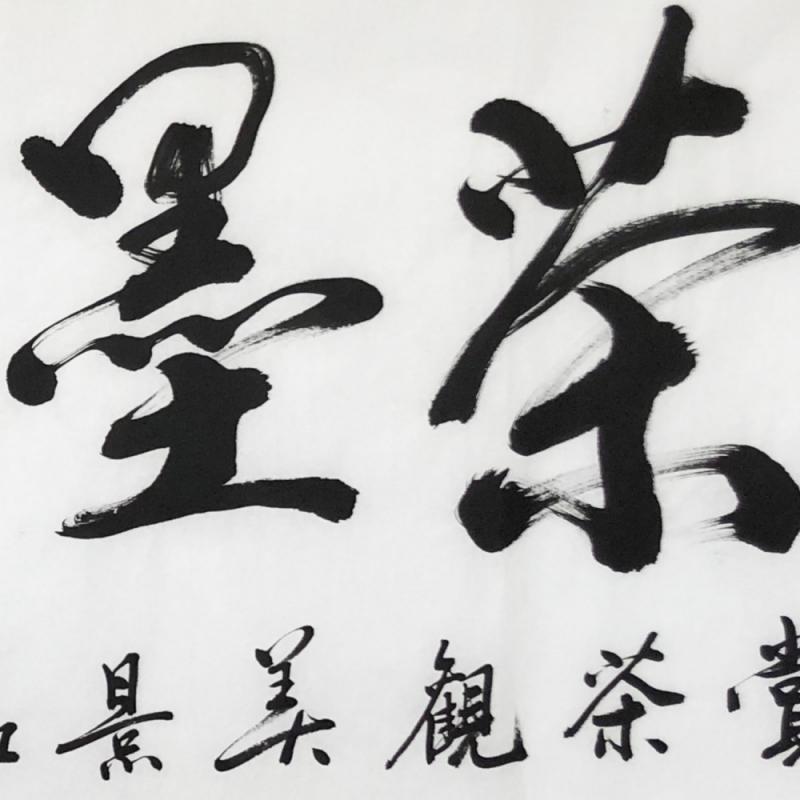 茶墨
賞茶觀美景